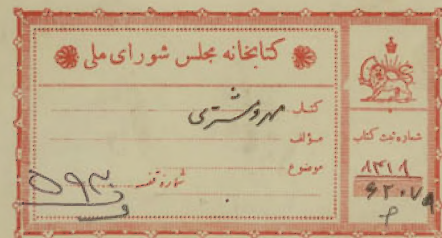 کتابخانه مجلس شورای ملی
کتاب مهر و مشتری
مؤلف
موضوع
شماره قفسه
۵۹۳
شماره ثبت کتاب
۸۴۱۸
۶۲۰۷۹